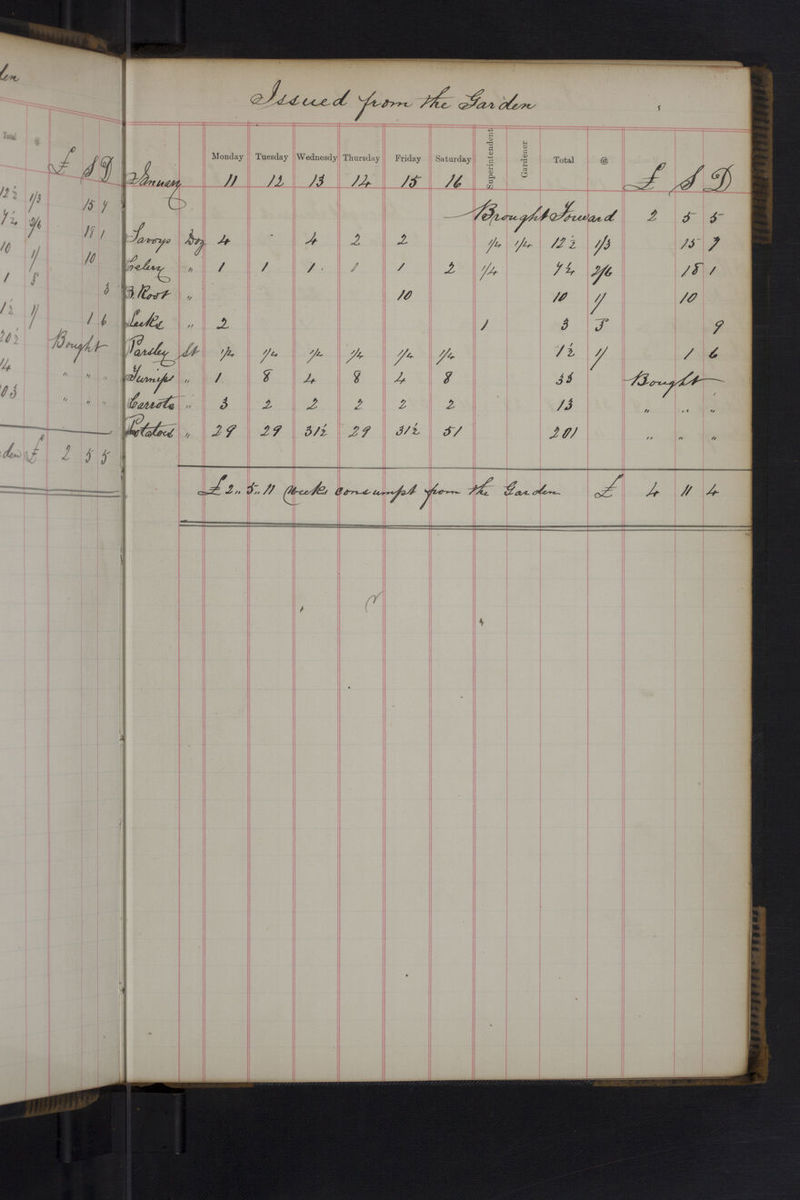 Issued from the Garden
Monday Tuesday Wednesdy Thursday Friday Saturday Superintendent Gardener Total @
January 11 12 13 14 15 16 £ S D
Brought Forward 2 5 5
Savoys Doz 4 - 4 2 2 1/4 1/4 12½ 1/3 15 7
Celery " 1 1 1 1 1 2 1/4 7¼ 2/6 18 1
B. Root " 10 10 1/ 10
Leeks " 2 1 3 3 9
Parsley St 1/4 1/4 1/4 1/4 1/4 1/4 1½ 1/ 1 6
Turnips " 1 8 4 8 4 8 33 Bought
Carrots " 3 2 2 2 2 2 13 " " "
Potatoes " 29 29 31½ 29 31½ 51 201 " " "
£2 " 5 " 11 Weeks consumpt from the Garden £ 4 11 4
Total @
£ S D
12½ 1/3 15 7
7¼ 2/6 18 1
10 1/ 10
1 3 3
1½ 1/ 1 6
Bought
" " "
" " "
£ 2 5 5